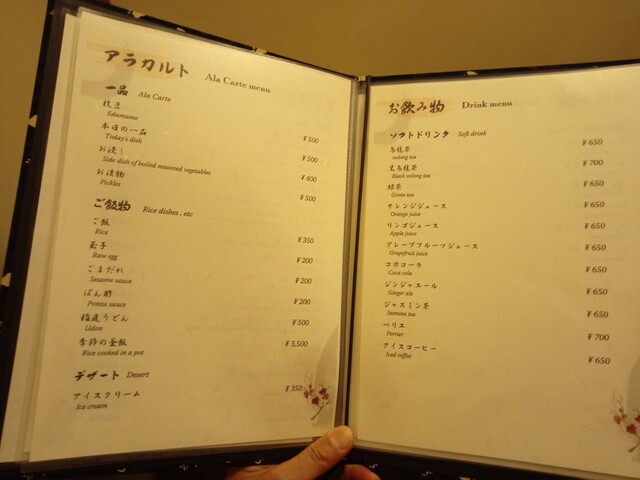 アラカルト Ala Carte menu
一品 Ala Carte
枝豆 ¥500
Edamame
本日の一品 ¥500
Today's dish
お浸し ¥400
Side dish of boiled seasoned vegetables
お漬物 ¥500
Pickles
ご飯物 Rice dishes, etc
ご飯 ¥350
Rice
玉子 ¥200
Raw egg
ごまだれ ¥200
Sesame sauce
ぽん酢 ¥200
Ponzu sauce
稲庭うどん ¥500
Udon
季節の釜飯 ¥3,500
Rice cooked in a pot
デザート Desert
アイスクリーム ¥350
Ice cream
お飲み物 Drink menu
ソフトドリンク Soft drink
烏龍茶 ¥650
oolong tea
黒烏龍茶 ¥700
Black oolong tea
緑茶 ¥650
Green tea
オレンジジュース ¥650
Orange juice
リンゴジュース ¥650
Apple juice
グレープフルーツジュース ¥650
Grapefruit juice
コカコーラ ¥650
Coca cola
ジンジャエール ¥650
Ginger ale
ジャスミン茶 ¥650
Jasmine tea
ペリエ ¥700
Perrier
アイスコーヒー ¥650
Iced coffee